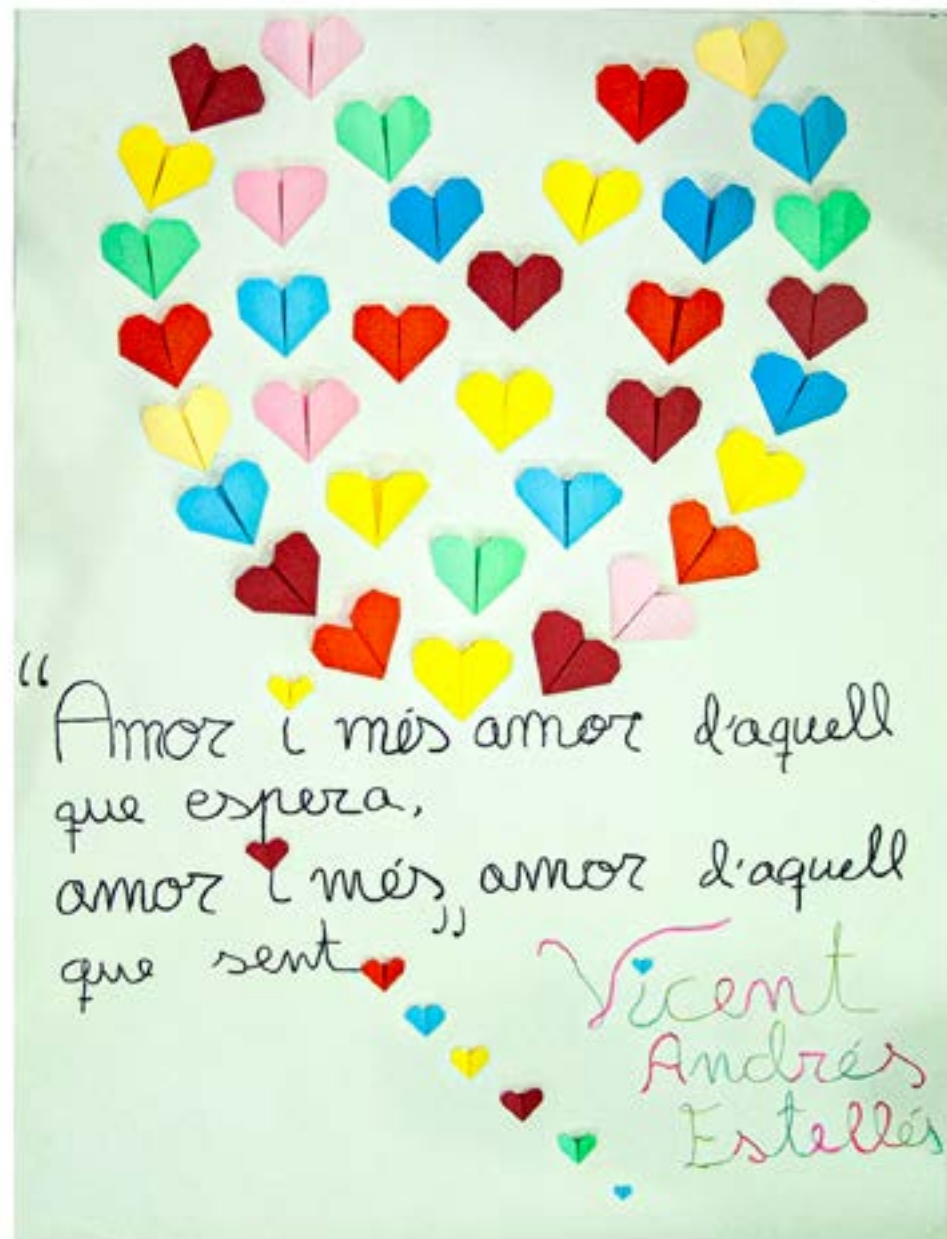 “Amor i més amor d'aquell
que espera,
amor i més amor d'aquell
que sent”
Vicent
Andrés
Estellés